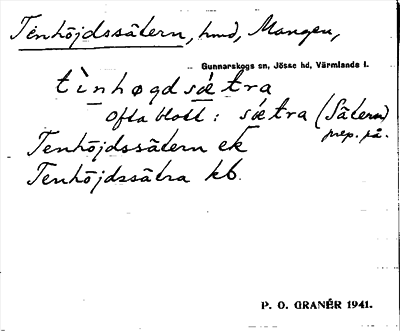 Tenhöjdssätern, hmd, Mangen,
Gunnarskogs sn, Jösse hd, Värmlands l.
tìnhøgdsǽtra
ofta blott: sǽtra (Sätern)
prep. på.
Tenhöjdssätern ek
Tenhöjdssätra kb.
P. O. GRANÉR 1941.